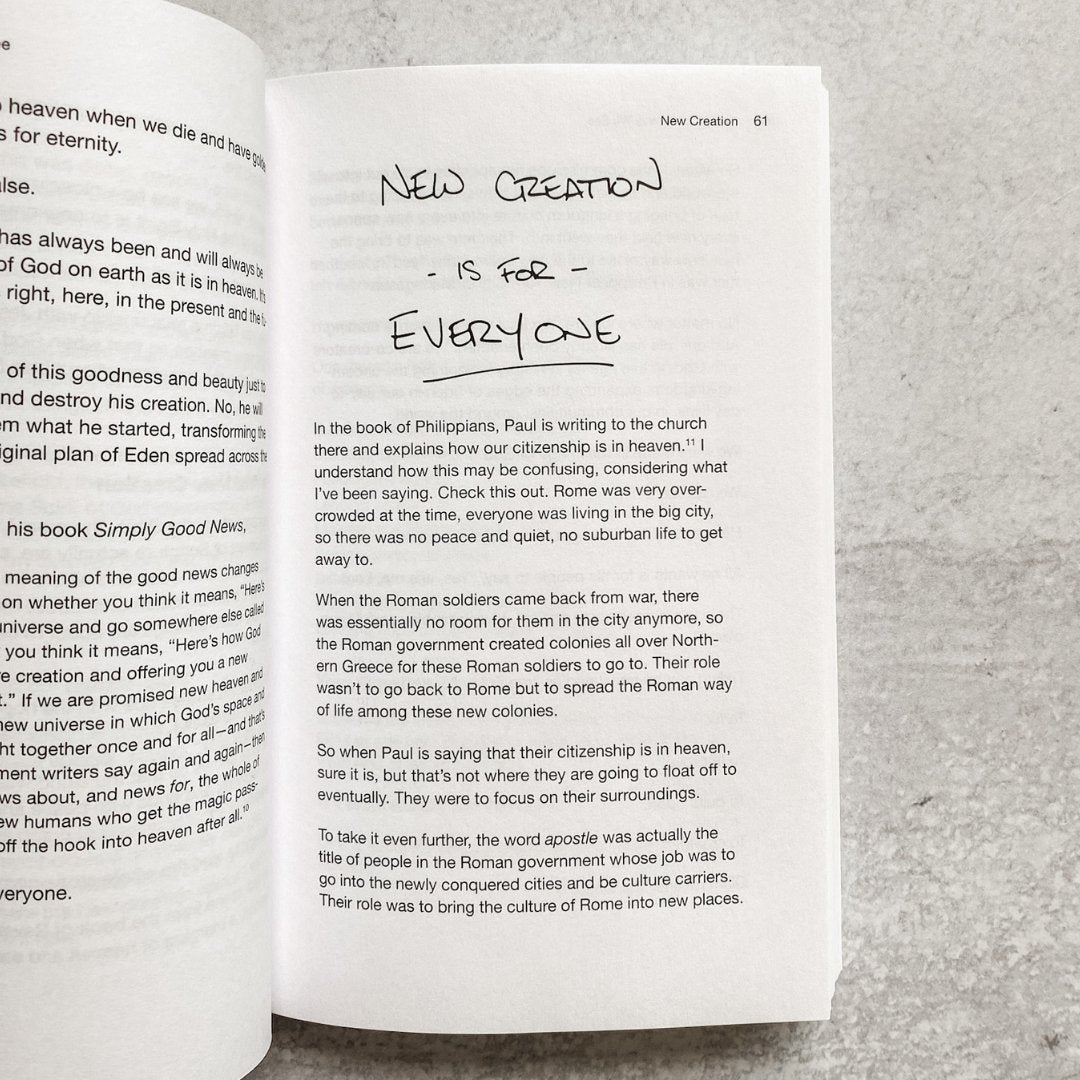 e
heaven when we die and have golde
s for eternity.
alse.
has always been and will always be
of God on earth as it is in heaven. It's
right, here, in the present and the fu-
of this goodness and beauty just to
nd destroy his creation. No, he will
em what he started, transforming the
iginal plan of Eden spread across the
his book Simply Good News,
meaning of the good news changes
on whether you think it means, “Here’s
universe and go somewhere else called
you think it means, “Here’s how God
e creation and offering you a new
t.” If we are promised new heaven and
new universe in which God’s space and
ht together once and for all—and that’s
ment writers say again and again—then
ws about, and news for, the whole of
ew humans who get the magic pass-
off the hook into heaven after all.10
veryone.
New Creation 61
NEW CREATION
- IS FOR -
EVERYONE
In the book of Philippians, Paul is writing to the church
there and explains how our citizenship is in heaven.11 I
understand how this may be confusing, considering what
I’ve been saying. Check this out. Rome was very over-
crowded at the time, everyone was living in the big city,
so there was no peace and quiet, no suburban life to get
away to.
When the Roman soldiers came back from war, there
was essentially no room for them in the city anymore, so
the Roman government created colonies all over North-
ern Greece for these Roman soldiers to go to. Their role
wasn’t to go back to Rome but to spread the Roman way
of life among these new colonies.
So when Paul is saying that their citizenship is in heaven,
sure it is, but that’s not where they are going to float off to
eventually. They were to focus on their surroundings.
To take it even further, the word apostle was actually the
title of people in the Roman government whose job was to
go into the newly conquered cities and be culture carriers.
Their role was to bring the culture of Rome into new places.